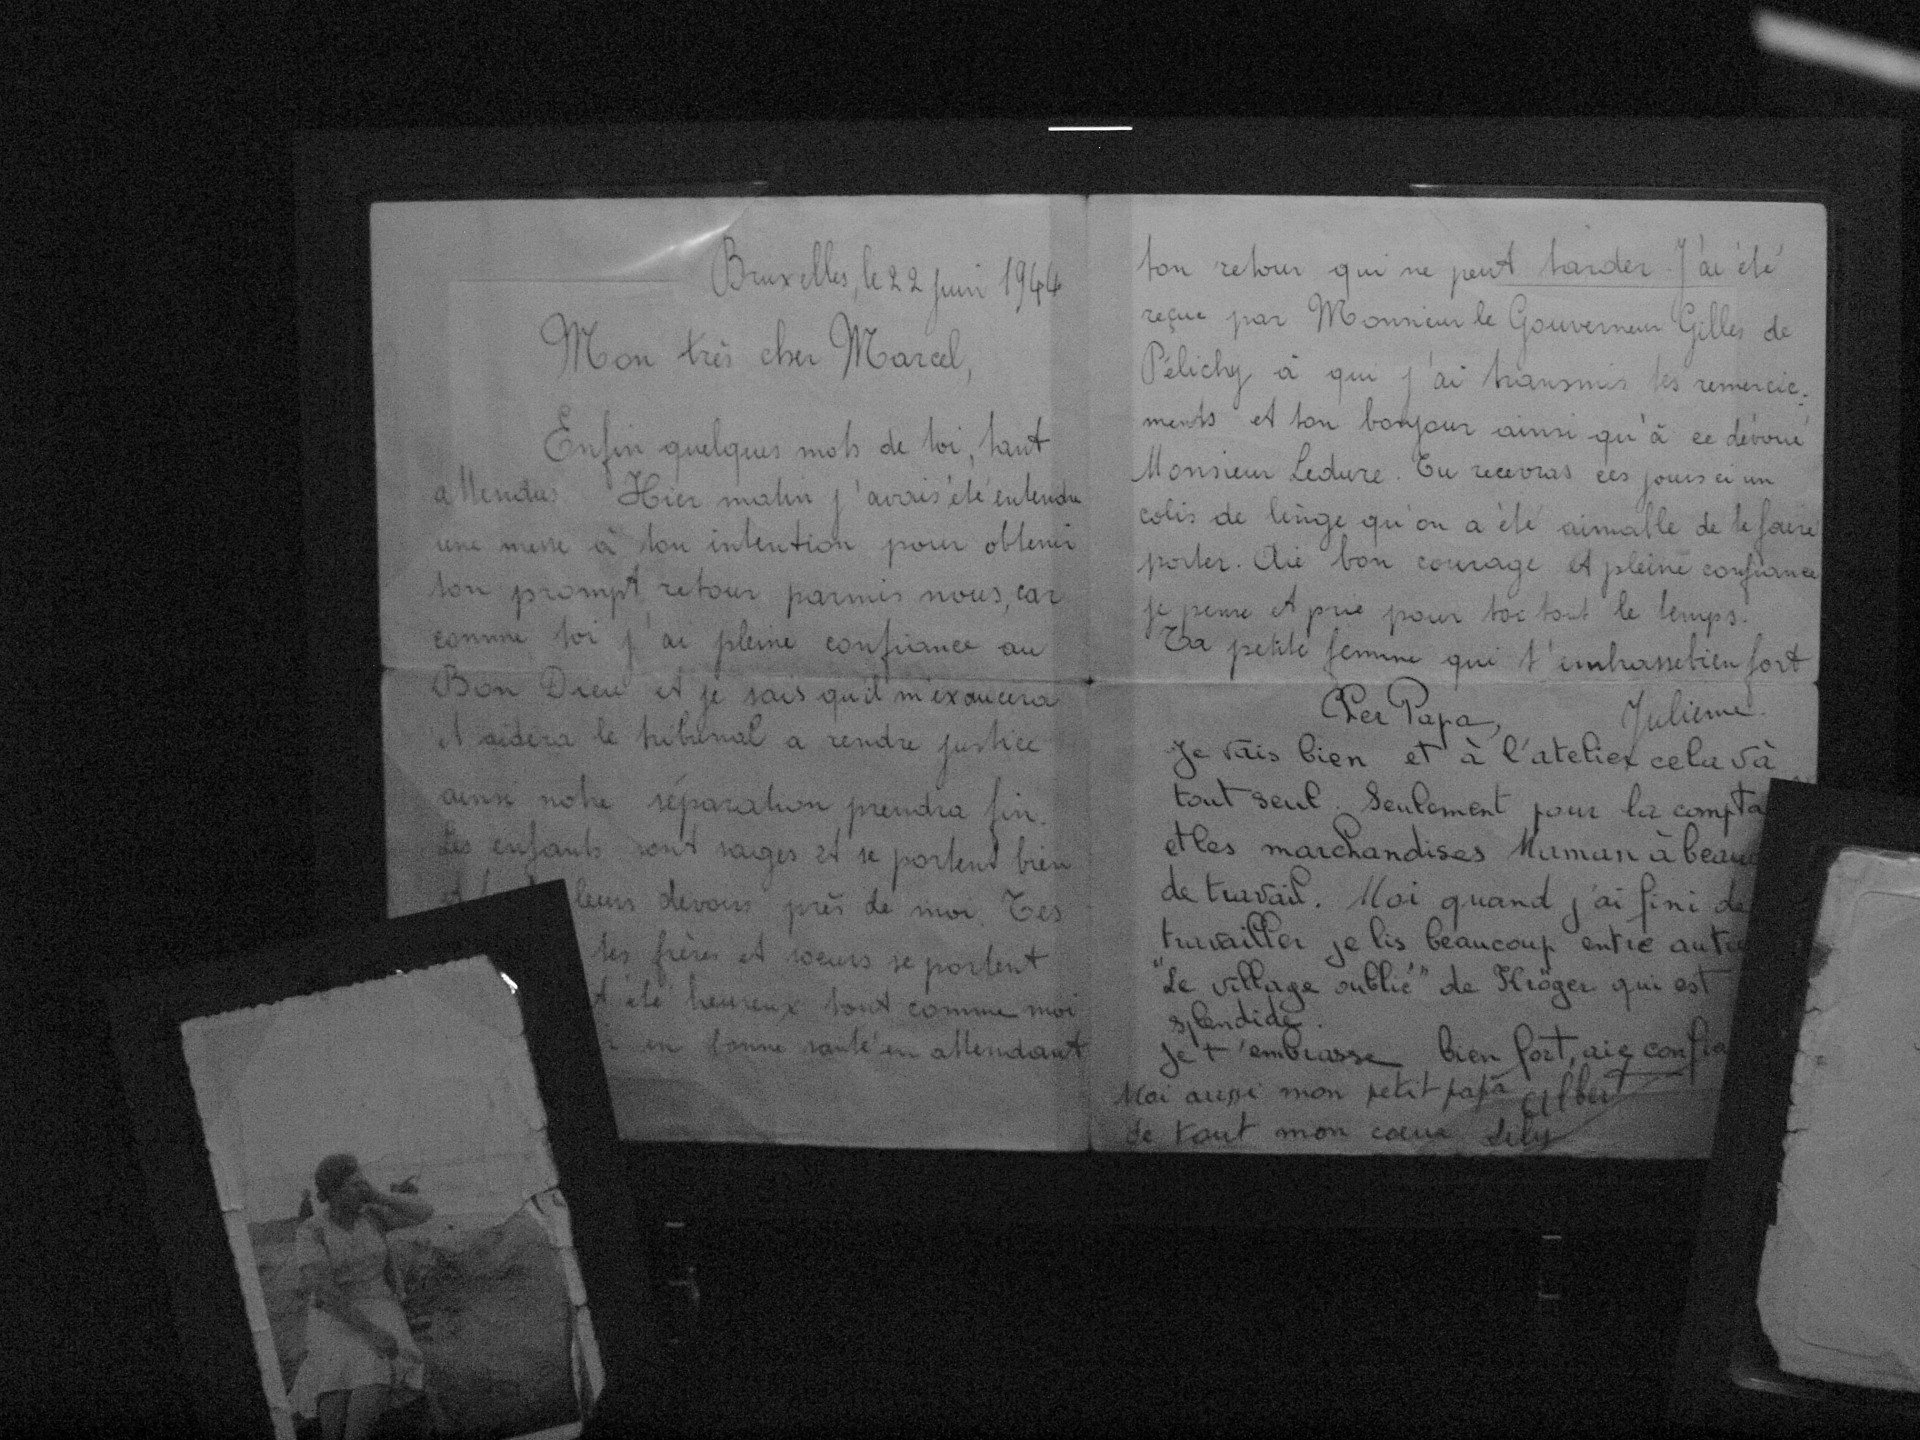 Bruxelles, le 22 juin 1944
Mon très cher Marcel,
Enfin quelques mots de toi, tant
attendus. Hier matin j'avais été entendre
une messe à ton intention pour obtenir
ton prompt retour parmis nous, car
comme toi j'ai pleine confiance au
Bon Dieu et je sais qu'il m'exaucera
et aidera le tribunal a rendre justice
ainsi notre séparation prendra fin.
Les enfants sont sages et se portent bien
leurs devoirs près de moi. Tes
tes frères et soeurs se portent
été heureux tout comme moi
en bonne santé en attendant
ton retour qui ne peut tarder. J'ai été
reçue par Monsieur le Gouverneur Gilles de
Pélichy à qui j'ai transmis tes remercie-
ments et ton bonjour ainsi qu'à ce dévoué
Monsieur Ledure. Tu recevras ces jours ci un
colis de linge qu'on a été aimable de te faire
porter. Aie bon courage et pleine confiance
je pense et prie pour toi tout le temps.
Ta petite femme qui t'embrasse bien fort
Julienne.
Cher Papa,
Je vais bien et à l'atelier cela và
tout seul. Seulement pour la compta
et les marchandises Maman à beau
de travail. Moi quand j'ai fini de
travailler je lis beaucoup entre autre
"Le village oublié" de Kröger qui est
splendide.
Je t'embrasse bien fort, aie confia
Albert
Moi aussi mon petit papa
de tout mon coeur Lily